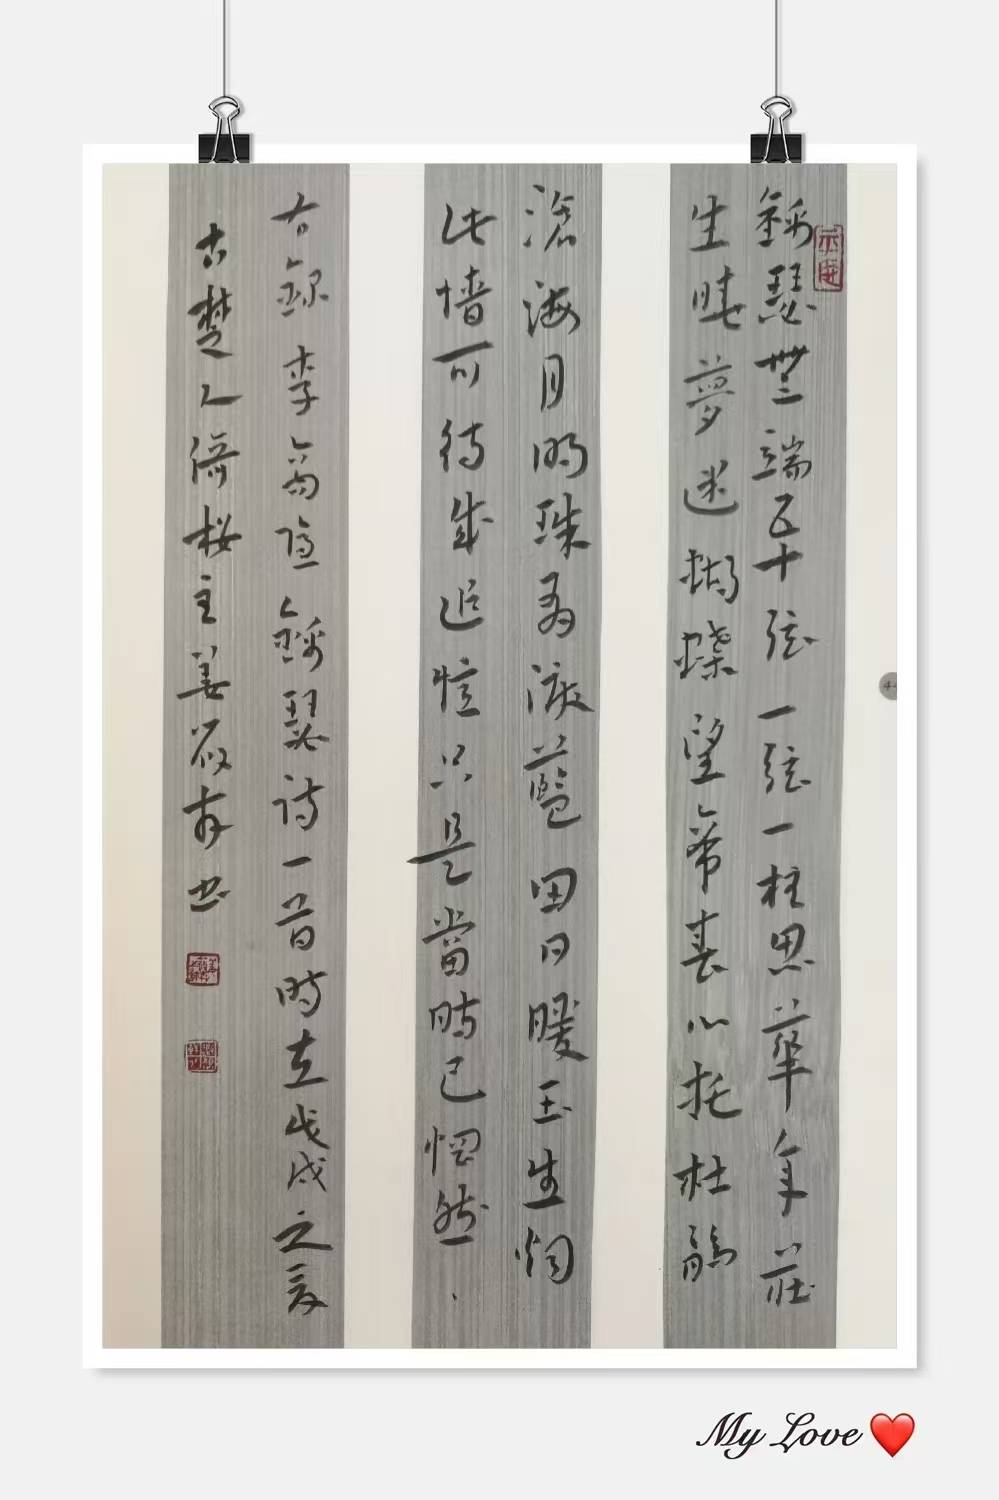 錦瑟無端五十弦一弦一柱思華年莊
生曉夢迷蝴蝶望帝春心托杜鵑
滄海月明珠有淚藍田日暖玉生烟
此情可待成追憶只是當時已惘然
右錄李商隱錦瑟詩一首時在戊戌之夏
古楚人倚桜主姜书
My Love